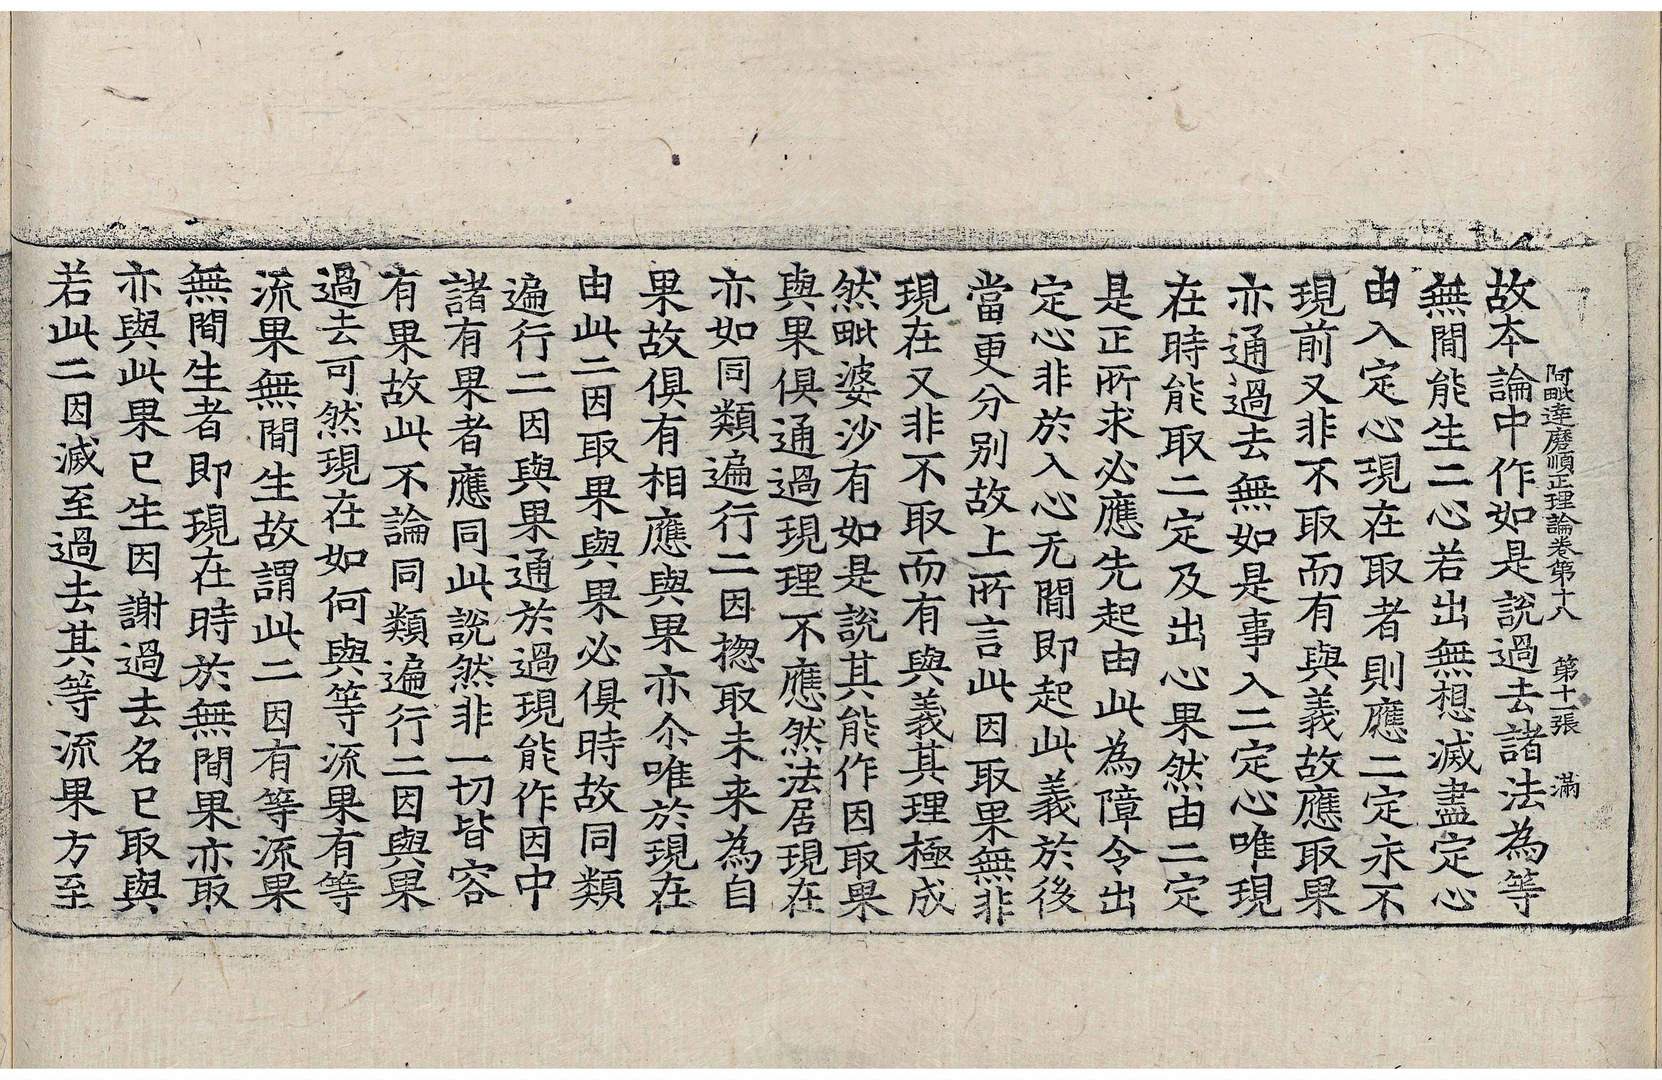 阿毗達磨順正理論卷第十八　第十一張　滿
故本論中作如是說過去諸法為等
無間能生二心若出無想滅盡定心
由入定心現在取者則應二定永不
現前又非不取而有與義故應取果
亦通過去無如是事入二定心唯現
在時能取二定及出心果然由二定
是正所求必應先起由此為障令出
定心非於入心无間即起此義於後
當更分別故上所言此因取果無非
現在又非不取而有與義其理極成
然毗婆沙有如是說其能作因取果
與果俱通過現理不應然法居現在
亦如同類遍行二因揔取未来為自
果故俱有相應與果亦尒唯於現在
由此二因取果與果必俱時故同類
遍行二因與果通於過現能作因中
諸有果者應同此說然非一切皆容
有果故此不論同類遍行二因與果
過去可然現在如何與等流果有等
流果無間生故謂此二因有等流果
無間生者即現在時於無間果亦取
亦與此果已生因謝過去名已取與
若此二因滅至過去其等流果方至